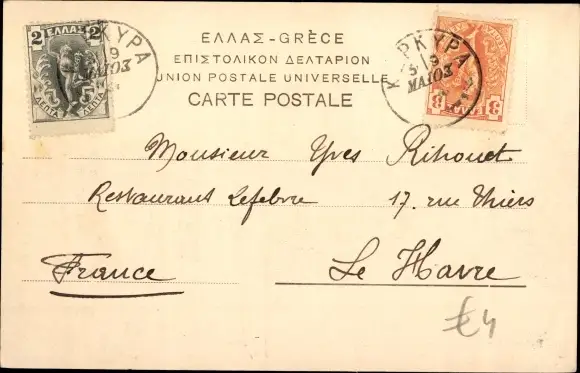 2 ΕΛΛΑΣ 2
ΛΕΠΤΑ ΛΕΠΤΑ
ΚΥΡΑ
9
ΜΑΙΟΣ
ΕΛΛΑΣ-GRÈCE
ΕΠΙΣΤΟΛΙΚΟΝ ΔΕΛΤΑΡΙΟΝ
UNION POSTALE UNIVERSELLE
CARTE POSTALE
ΚΕΡΚΥΡΑ
9
ΜΑΙΟΣ
3 3
Monsieur Yves Rihouet
Restaurant Lefebvre 17. rue Thiers
France Le Havre
£4